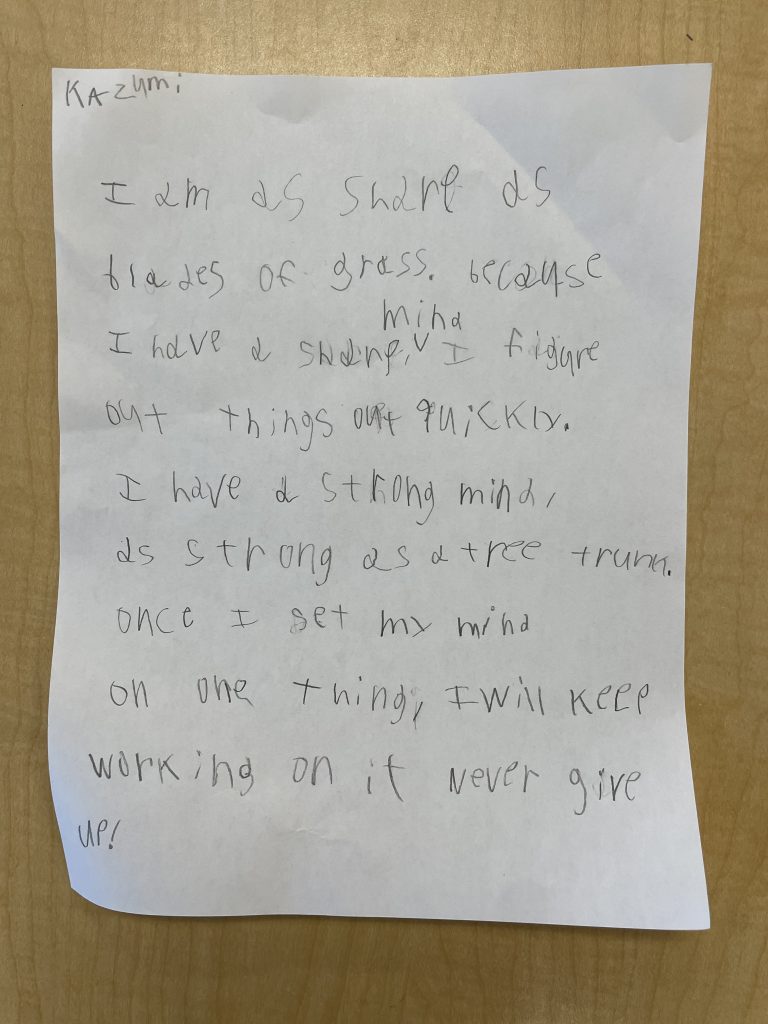 Kazumi
I am as sharp as
blades of grass. because
mind
I have a sharp, I figure
out things out quickly.
I have a strong mind,
as strong as a tree trunk.
once I set my mind
on one thing, I will keep
working on it never give
up!